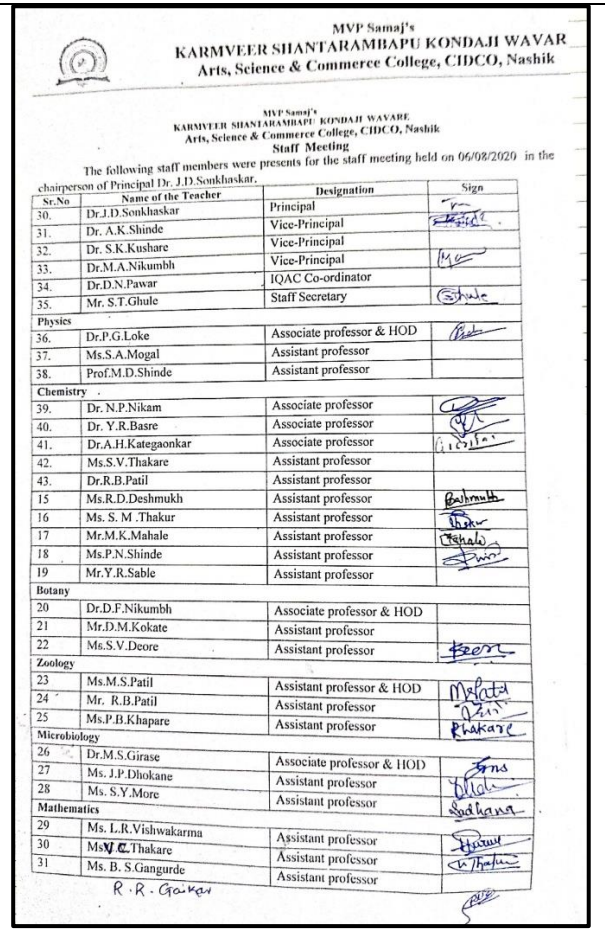 MVP Samaj's
KARMVEER SHANTARAMBAPU KONDAJI WAVAR
Arts, Science & Commerce College, CIDCO, Nashik
MVP Samaj's
KARMVEER SHANTARAMBAPU KONDAJI WAVARE
Arts, Science & Commerce College, CIDCO, Nashik
Staff Meeting
The following staff members were presents for the staff meeting held on 06/08/2020 in the
chairperson of Principal Dr. J.D.Sonkhaskar.
Sr.No Name of the Teacher Designation Sign
30. Dr.J.D.Sonkhaskar Principal
31. Dr. A.K.Shinde Vice-Principal
32. Dr. S.K.Kushare Vice-Principal
33. Dr.M.A.Nikumbh Vice-Principal
34. Dr.D.N.Pawar IQAC Co-ordinator
35. Mr. S.T.Ghule Staff Secretary Ghule
Physics
36. Dr.P.G.Loke Associate professor & HOD
37. Ms.S.A.Mogal Assistant professor
38. Prof.M.D.Shinde Assistant professor
Chemistry .
39. Dr. N.P.Nikam Associate professor
40. Dr. Y.R.Basre Associate professor
41. Dr.A.H.Kategaonkar Associate professor
42. Ms.S.V.Thakare Assistant professor
43. Dr.R.B.Patil Assistant professor
15 Ms.R.D.Deshmukh Assistant professor
16 Ms. S. M .Thakur Assistant professor
17 Mr.M.K.Mahale Assistant professor
18 Ms.P.N.Shinde Assistant professor
19 Mr.Y.R.Sable Assistant professor
Botany
20 Dr.D.F.Nikumbh Associate professor & HOD
21 Mr.D.M.Kokate Assistant professor
22 Ms.S.V.Deore Assistant professor
Zoology
23 Ms.M.S.Patil Assistant professor & HOD MsPatil
24 Mr. R.B.Patil Assistant professor
25 Ms.P.B.Khapare Assistant professor
Microbiology
26 Dr.M.S.Girase Associate professor & HOD
27 Ms. J.P.Dhokane Assistant professor
28 Ms. S.Y.More Assistant professor Sadhana
Mathematics
29 Ms. L.R.Vishwakarma Assistant professor
30 Ms V.C.Thakare Assistant professor
31 Ms. B. S.Gangurde Assistant professor
R.R. Gaikar